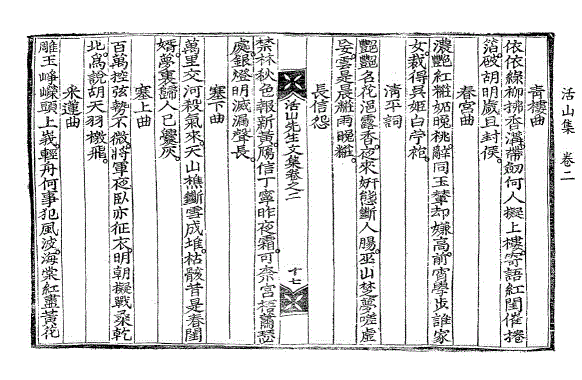 活山集 卷二
靑樓曲
依依綠柳拂香溝。帶劒何人擬上樓。寄語紅閨催捲
箔。破胡明歲且封侯。
春宮曲
濃艶紅糚妬晩桃。辭同玉輦却嫌高。前宵學步誰家
女。裁得吳姬白苧袍。
淸平詞
艶艶名花浥露香。夜來姸態斷人腸。巫山梦夢嗟虛
妄。雲是晨糚雨晩糚。
長信怨
活山先生文集卷之二 十七
禁林秋色報新黃。鴈信丁寧昨夜霜。可柰宮梧蕭瑟
處。銀燈明滅漏聲長。
塞下曲
萬里交河殺氣來。天山樵斷雪成堆。枯骸昔是春閨
婿。夢裏歸人已爨灰。
塞上曲
百萬控弦勢不微。將軍夜臥亦征衣。明朝擬戰桑乾
北。爲說胡天羽檄飛。
采蓮曲
雕玉崢嶸頭上峩。輕舟何事犯風波。海棠紅盡黃花